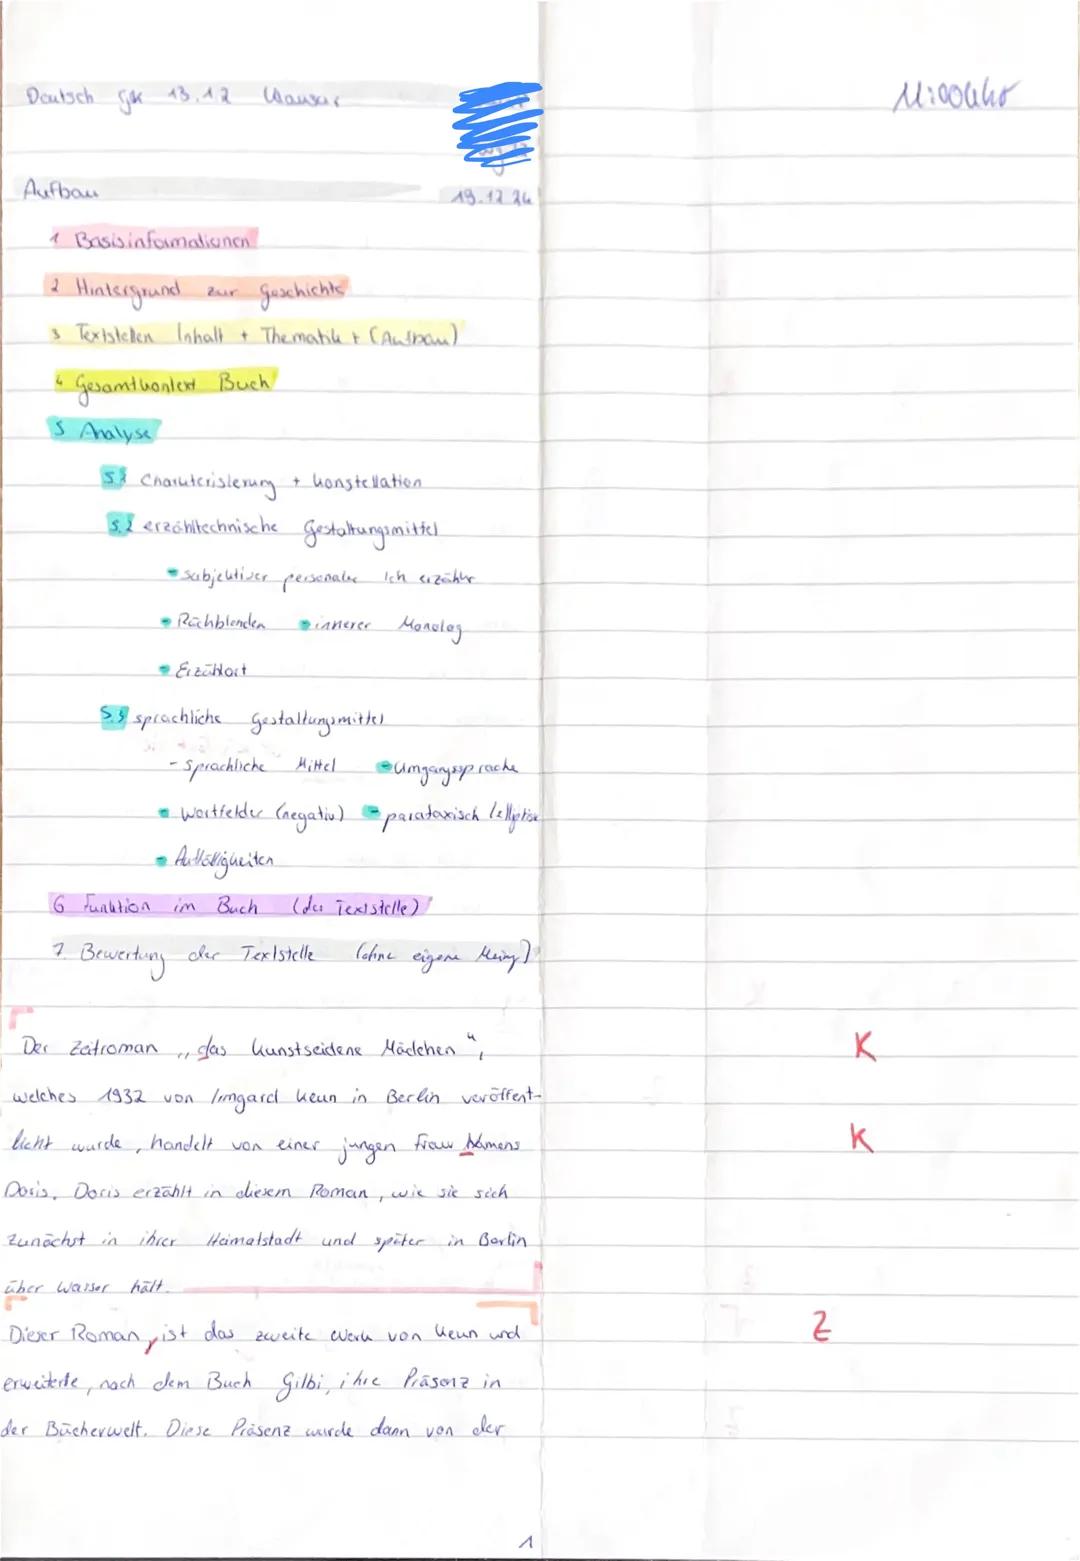 Deutsch gk 13.1.2 Klausur
Aufbau
19.12.24
1 Basisinformationen
2 Hintergrund zur Geschichte
3 Textstellen Inhalt + Thematik + (Aufbau)
4 Gesamtkontext Buch
5 Analyse
5.1 Charakterisierung + Konstellation
5.2 erzähltechnische Gestaltungsmittel
subjektiver personaler Ich erzähler
Rückblenden innerer Monolog
Erzählort
5.3 sprachliche Gestaltungsmittel
- Sprachliche Mittel Umgangssprache
Wortfelder (negativ) parataxisch /elliptisch
Auffälligkeiten
6 Funktion im Buch (der Textstelle)
7. Bewertung der Textstelle (ohne eigene Meinung)
Der Zeitroman „das kunstseidene Mädchen“, K
welches 1932 von Irmgard Keun in Berlin veröffent-
licht wurde, handelt von einer jungen Frau Namens K
Doris. Doris erzählt in diesem Roman, wie sie sich
zunächst in ihrer Heimatstadt und später in Berlin
über Wasser hält.
Dieser Roman, ist das zweite Werk von Keun und Z
erweiterte, nach dem Buch Gilbi, ihre Präsenz in
der Bücherwelt. Diese Präsenz wurde dann von der
1